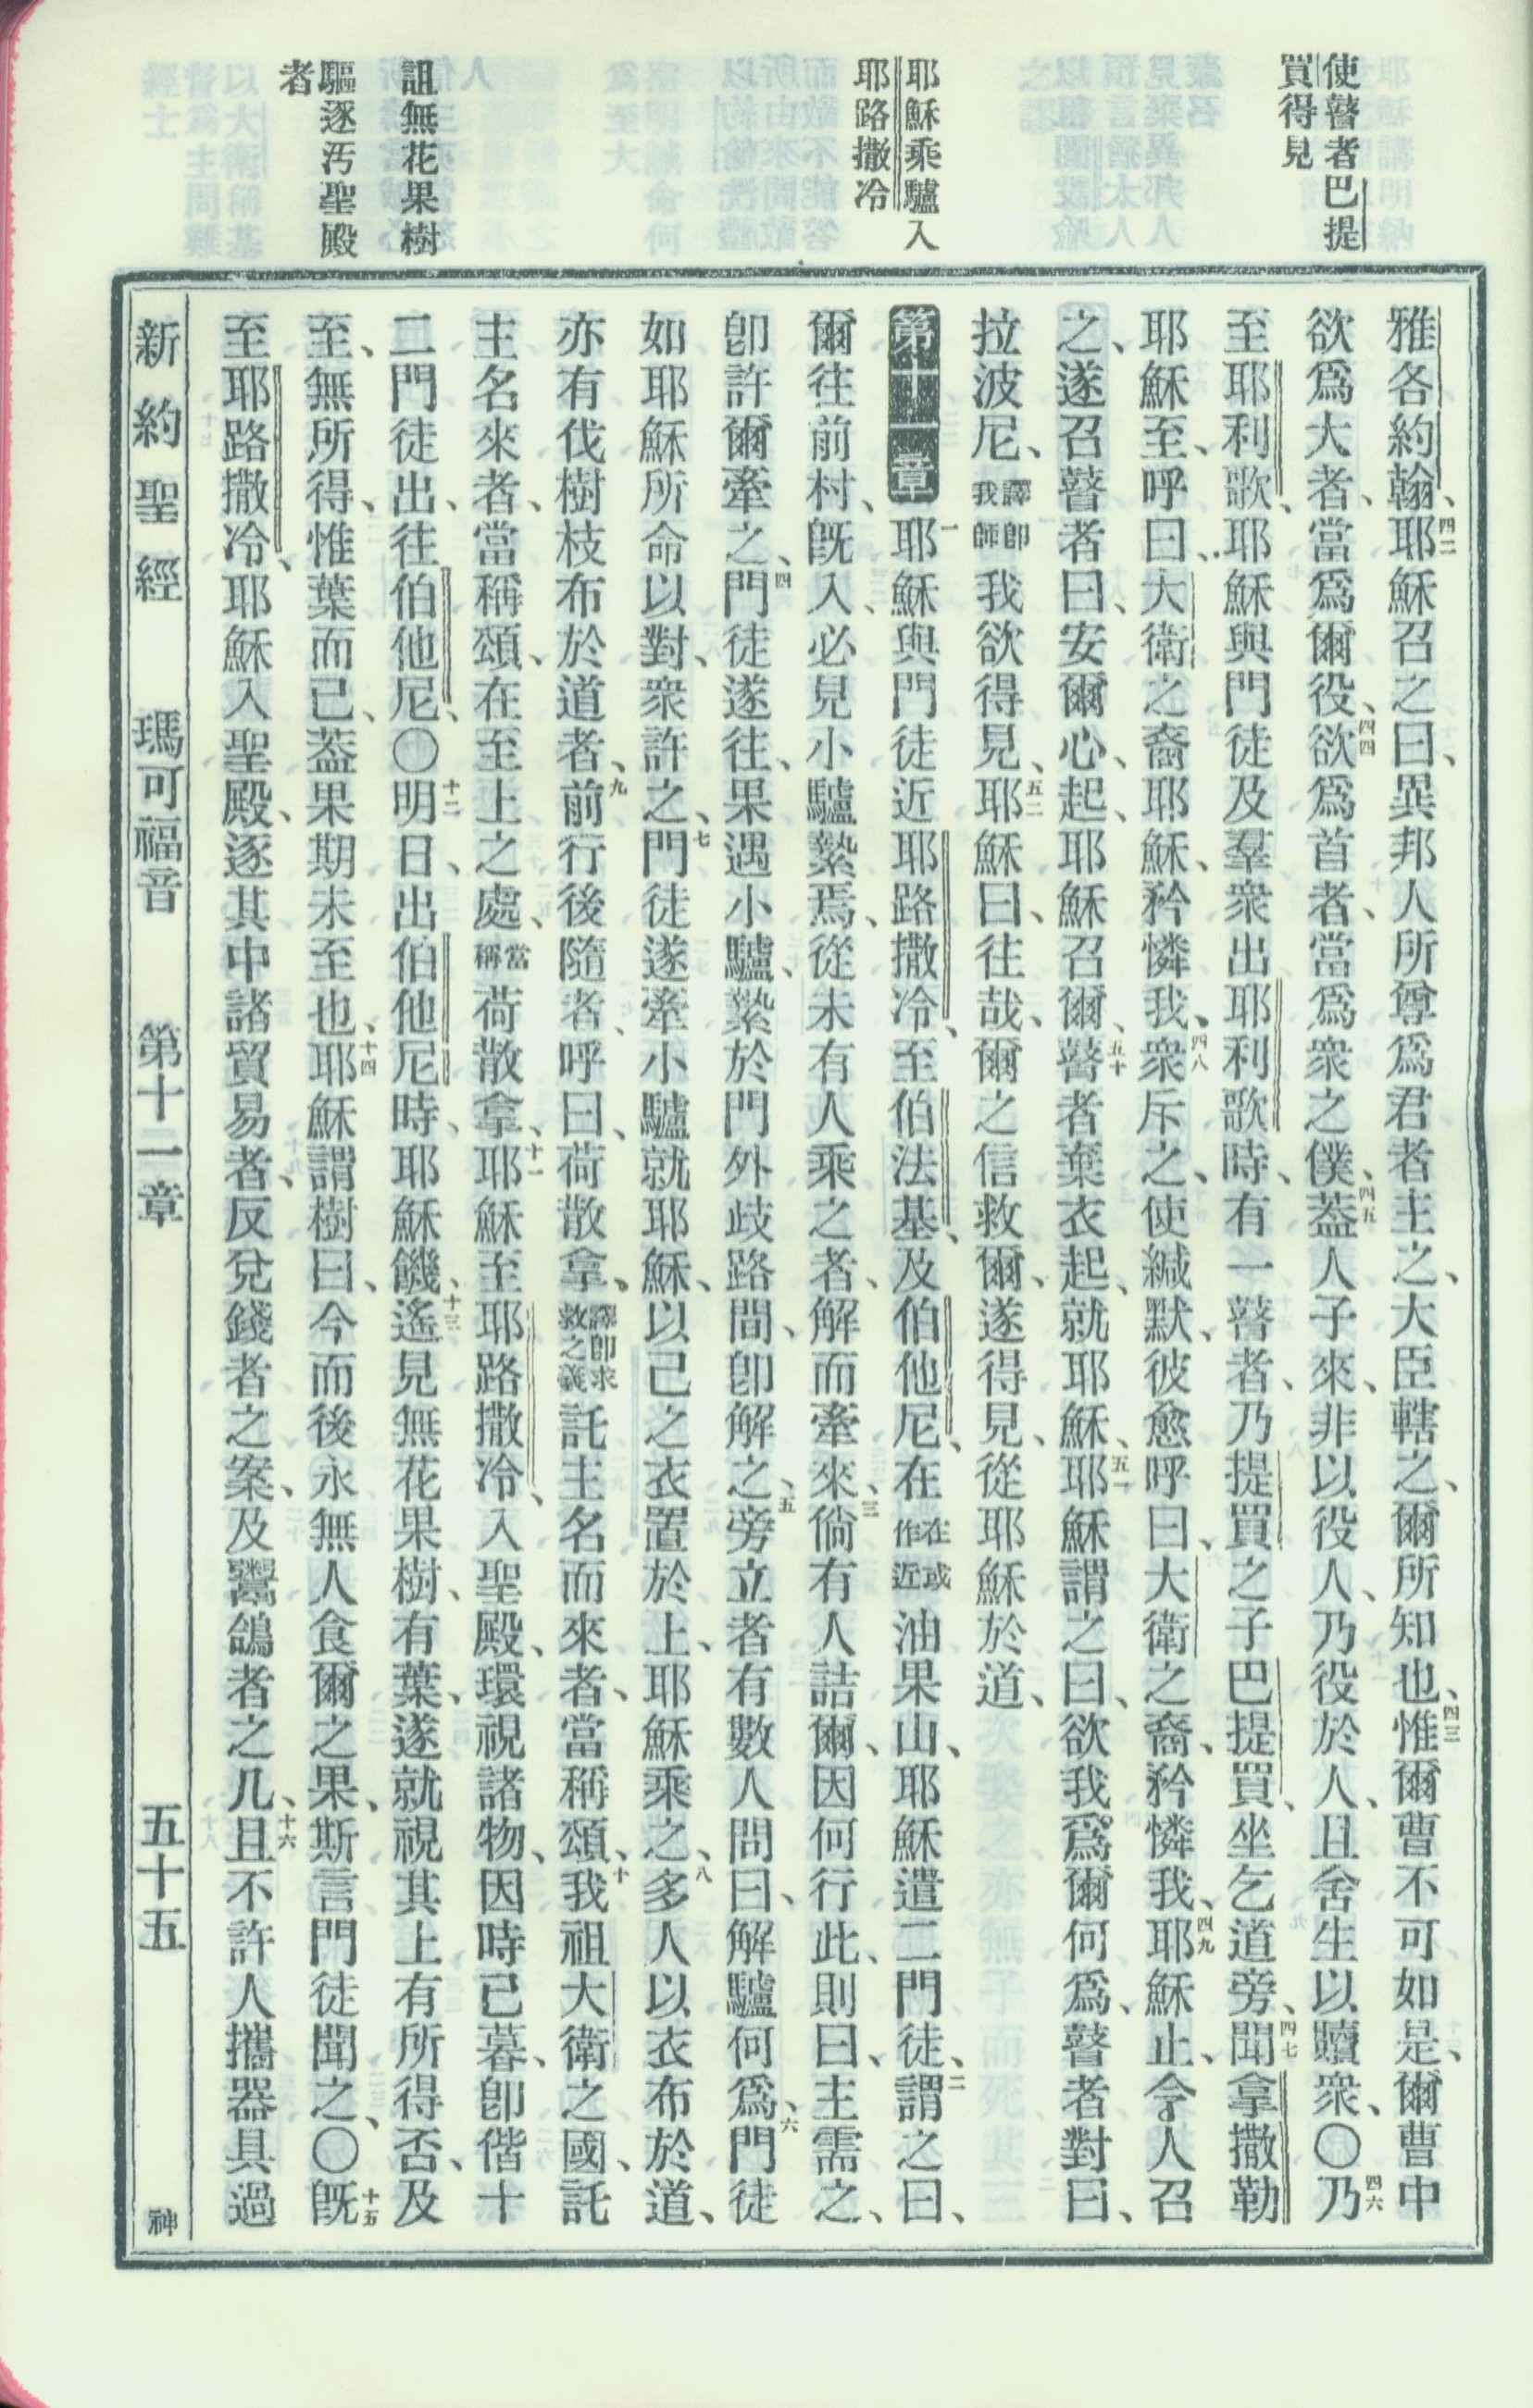 使瞽者巴提
買得見
耶穌乘驢入
耶路撒冷
詛無花果樹
驅逐汚聖殿
者
雅各約翰、四二耶穌召之曰、異邦人所尊爲君者主之、大臣轄之、爾所知也、四三惟爾曹不可如是、爾曹中
欲爲大者、當爲爾役、四四欲爲首者、當爲衆之僕、四五蓋人子來、非以役人、乃役於人、且舍生以贖衆、〇四六乃
至耶利歌、耶穌與門徒及羣衆出耶利歌時、有一瞽者、乃提買之子巴提買、坐乞道旁、四七聞拿撒勒
耶穌至、呼曰、大衛之裔耶穌、矜憐我、四八衆斥之、使緘默、彼愈呼曰、大衛之裔、矜憐我、四九耶穌止、令人召
之、遂召瞽者曰、安爾心、起、耶穌召爾、五十瞽者棄衣起、就耶穌、五一耶穌謂之曰、欲我爲爾何爲、瞽者對曰、
拉波尼、譯卽我師我欲得見、五二耶穌曰、往哉、爾之信救爾、遂得見、從耶穌於道、
第十一章 一耶穌與門徒近耶路撒冷、至伯法基、及伯他尼、在在或作近油果山、耶穌遣二門徒、二謂之曰、
爾往前村、旣入、必見小驢縶焉、從未有人乘之者、解而牽來、三倘有人詰爾、因何行此、則曰、主需之、
卽許爾牽之、四門徒遂往、果遇小驢、縶於門外歧路間、卽解之、五旁立者有數人問曰、解驢何爲、六門徒
如耶穌所命以對、衆許之、七門徒遂牽小驢就耶穌、以己之衣置於上、耶穌乘之、八多人以衣布於道、
亦有伐樹枝布於道者、九前行後隨者、呼曰、荷散拿、譯卽求救之義託主名而來者、當稱頌、十我祖大衛之國、託
主名來者、當稱頌、在至上之處、當稱荷散拿、十一耶穌至耶路撒冷、入聖殿、環視諸物、因時已暮、卽偕十
二門徒出、往伯他尼、〇十二明日、出伯他尼時、耶穌饑、十三遙見無花果樹、有葉、遂就視其上有所得否、及
至、無所得、惟葉而已、蓋果期未至也、十四耶穌謂樹曰、今而後永無人食爾之果、斯言門徒聞之、〇十五旣
至耶路撒冷、耶穌入聖殿、逐其中諸貿易者、反兌錢者之案、及鬻鴿者之几、十六且不許人攜器具過
新約聖經 瑪可福音 第十一章 五十五 神